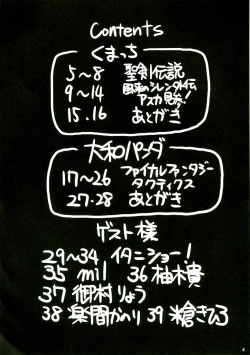 Contents
くまっち
5~8 聖剣伝説
9~14 風来のシレン外伝
アスカ見参!
15.16 あとがき
大和パンダ
17~26 ファイナルファンタジー
タクティクス
27.28 あとがき
ゲスト様
29~34 イタニショー!
35 mil 36 柚木貴
37 御村りょう
38 楽間かのり 39 粮きひろ
4